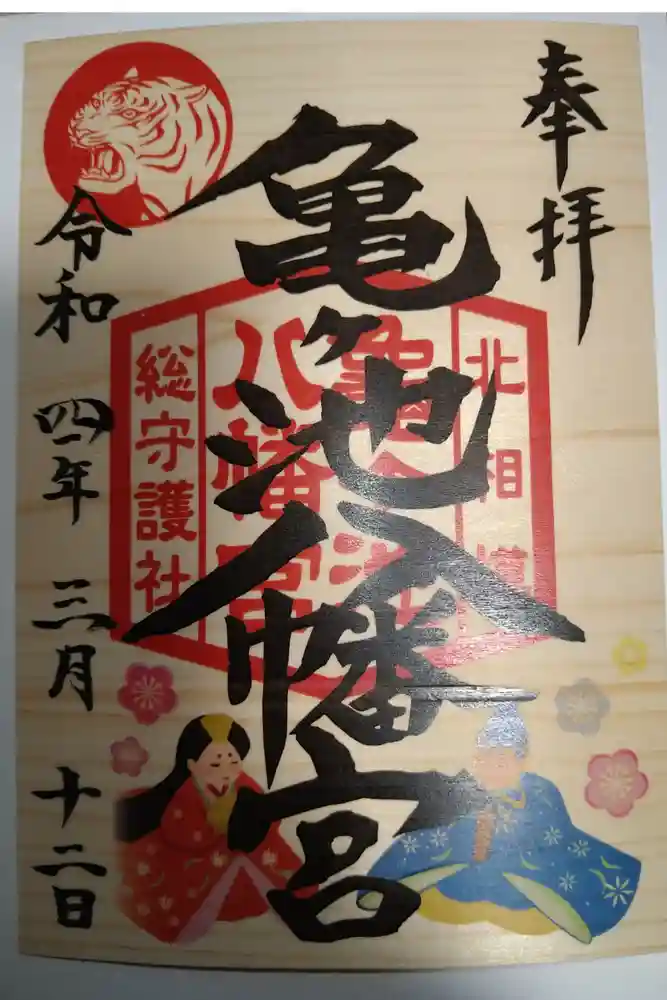 奉拝
北相模
亀ヶ池
八幡宮
総守護社
亀ヶ池八幡宮
令和四年三月十二日